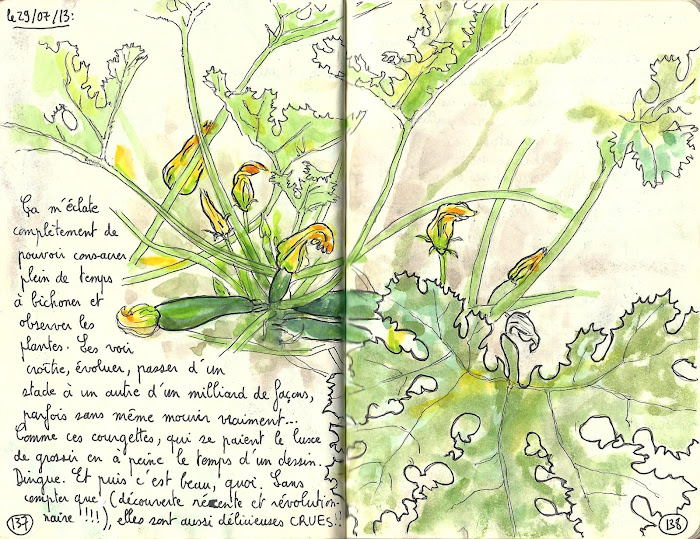 le 29/07/13:
Ça m'éclate
complètement de
pouvoir consacrer
plein de temps
à bichoner et
observer les
plantes. Les voir
croître, évoluer, passer d'un
stade à un autre d'un milliard de façons,
parfois sans même mourir vraiment...
Comme ces courgettes, qui se paient le luxe
de grossir en à peine le temps d'un dessin.
Dingue. Et puis c'est beau, quoi. Sans
compter que (découverte récente et révolution-
naire !!!!), elles sont aussi délicieuses CRUES!!
137
138